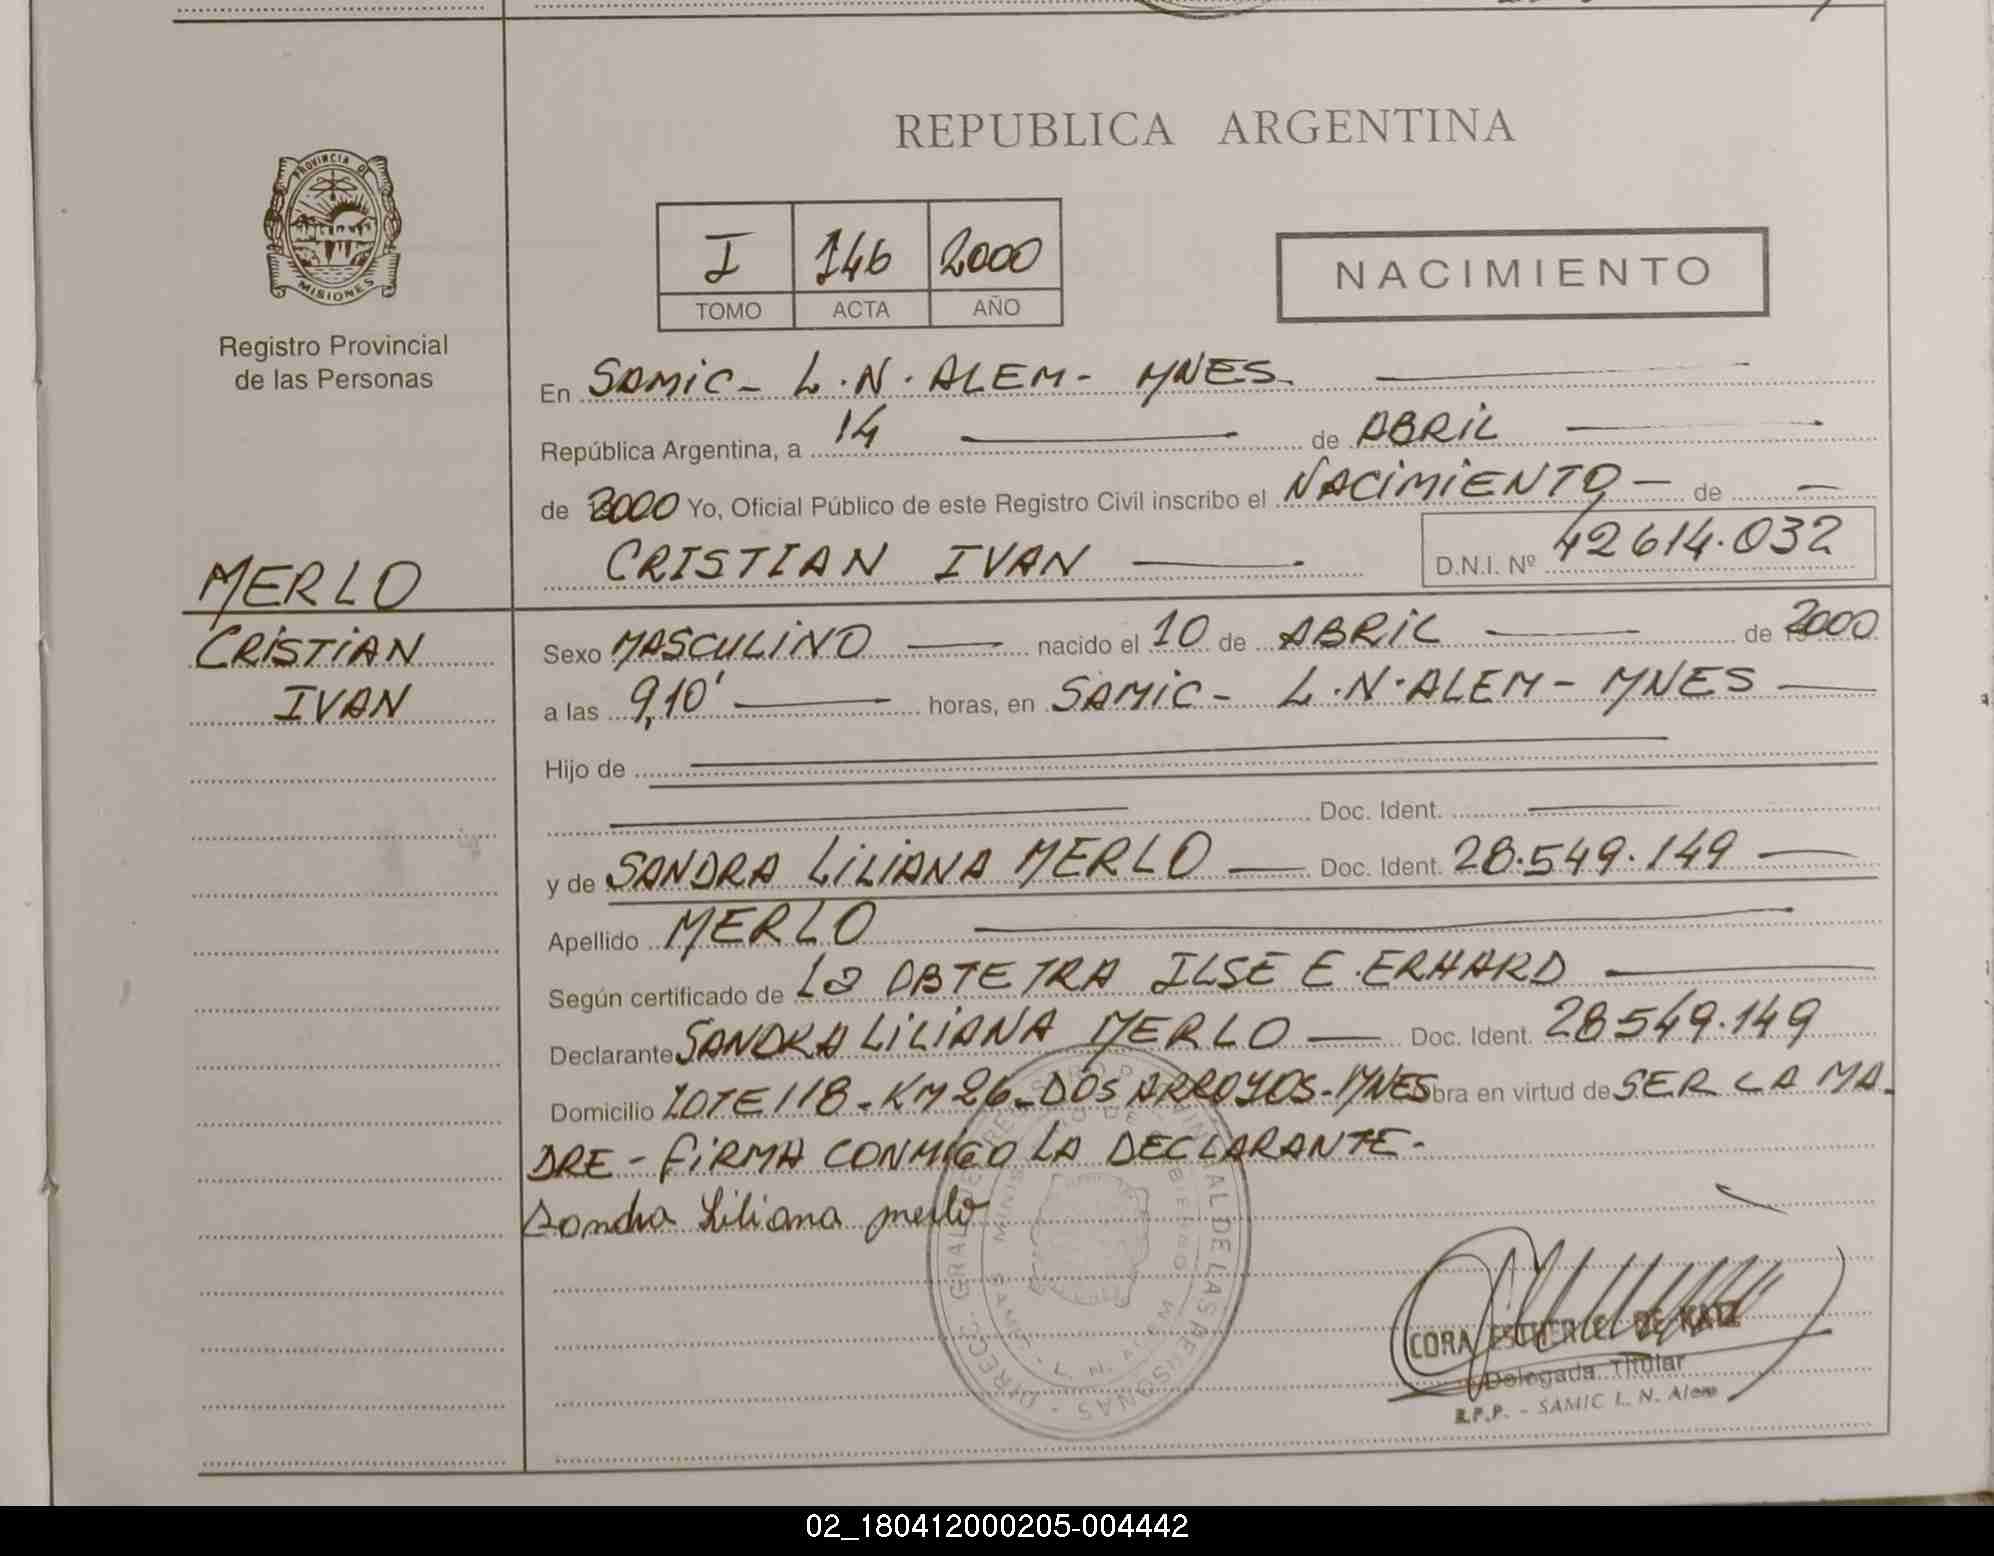 REPUBLICA ARGENTINA
PROVINCIA DE
MISIONES
Registro Provincial
de las Personas
I 146 2000
TOMO ACTA AÑO
NACIMIENTO
En SAMIC - L.N. ALEM - MNES
República Argentina, a 14 de ABRIL
de 2000 Yo, Oficial Público de este Registro Civil inscribo el NACIMIENTO - de
CRISTIAN IVAN D.N.I. Nº 42614.032
MERLO
CRISTIAN
IVAN
Sexo MASCULINO nacido el 10 de ABRIL de 2000
a las 9,10' horas, en SAMIC - L.N. ALEM - MNES
Hijo de
Doc. Ident.
y de SANDRA LILIANA MERLO Doc. Ident. 28.549.149
Apellido MERLO
Según certificado de La OBTETRA ILSE E. ERHARD
Declarante SANDRA LILIANA MERLO Doc. Ident. 28549.149
Domicilio LOTE 118 - KM 26 - DOS ARROYOS - MNES obra en virtud de SER LA MA-
DRE - FIRMA CONMIGO LA DECLARANTE -
Sandra Liliana Merlo
DIRECC. GRAL. DE REGISTRO PROVINCIAL DE LAS PERSONAS
SAMIC - L. N. ALEM
CORA ESTHER DE KATZ
Delegada Titular
R.P.P. - SAMIC L. N. Alem
02_180412000205-004442